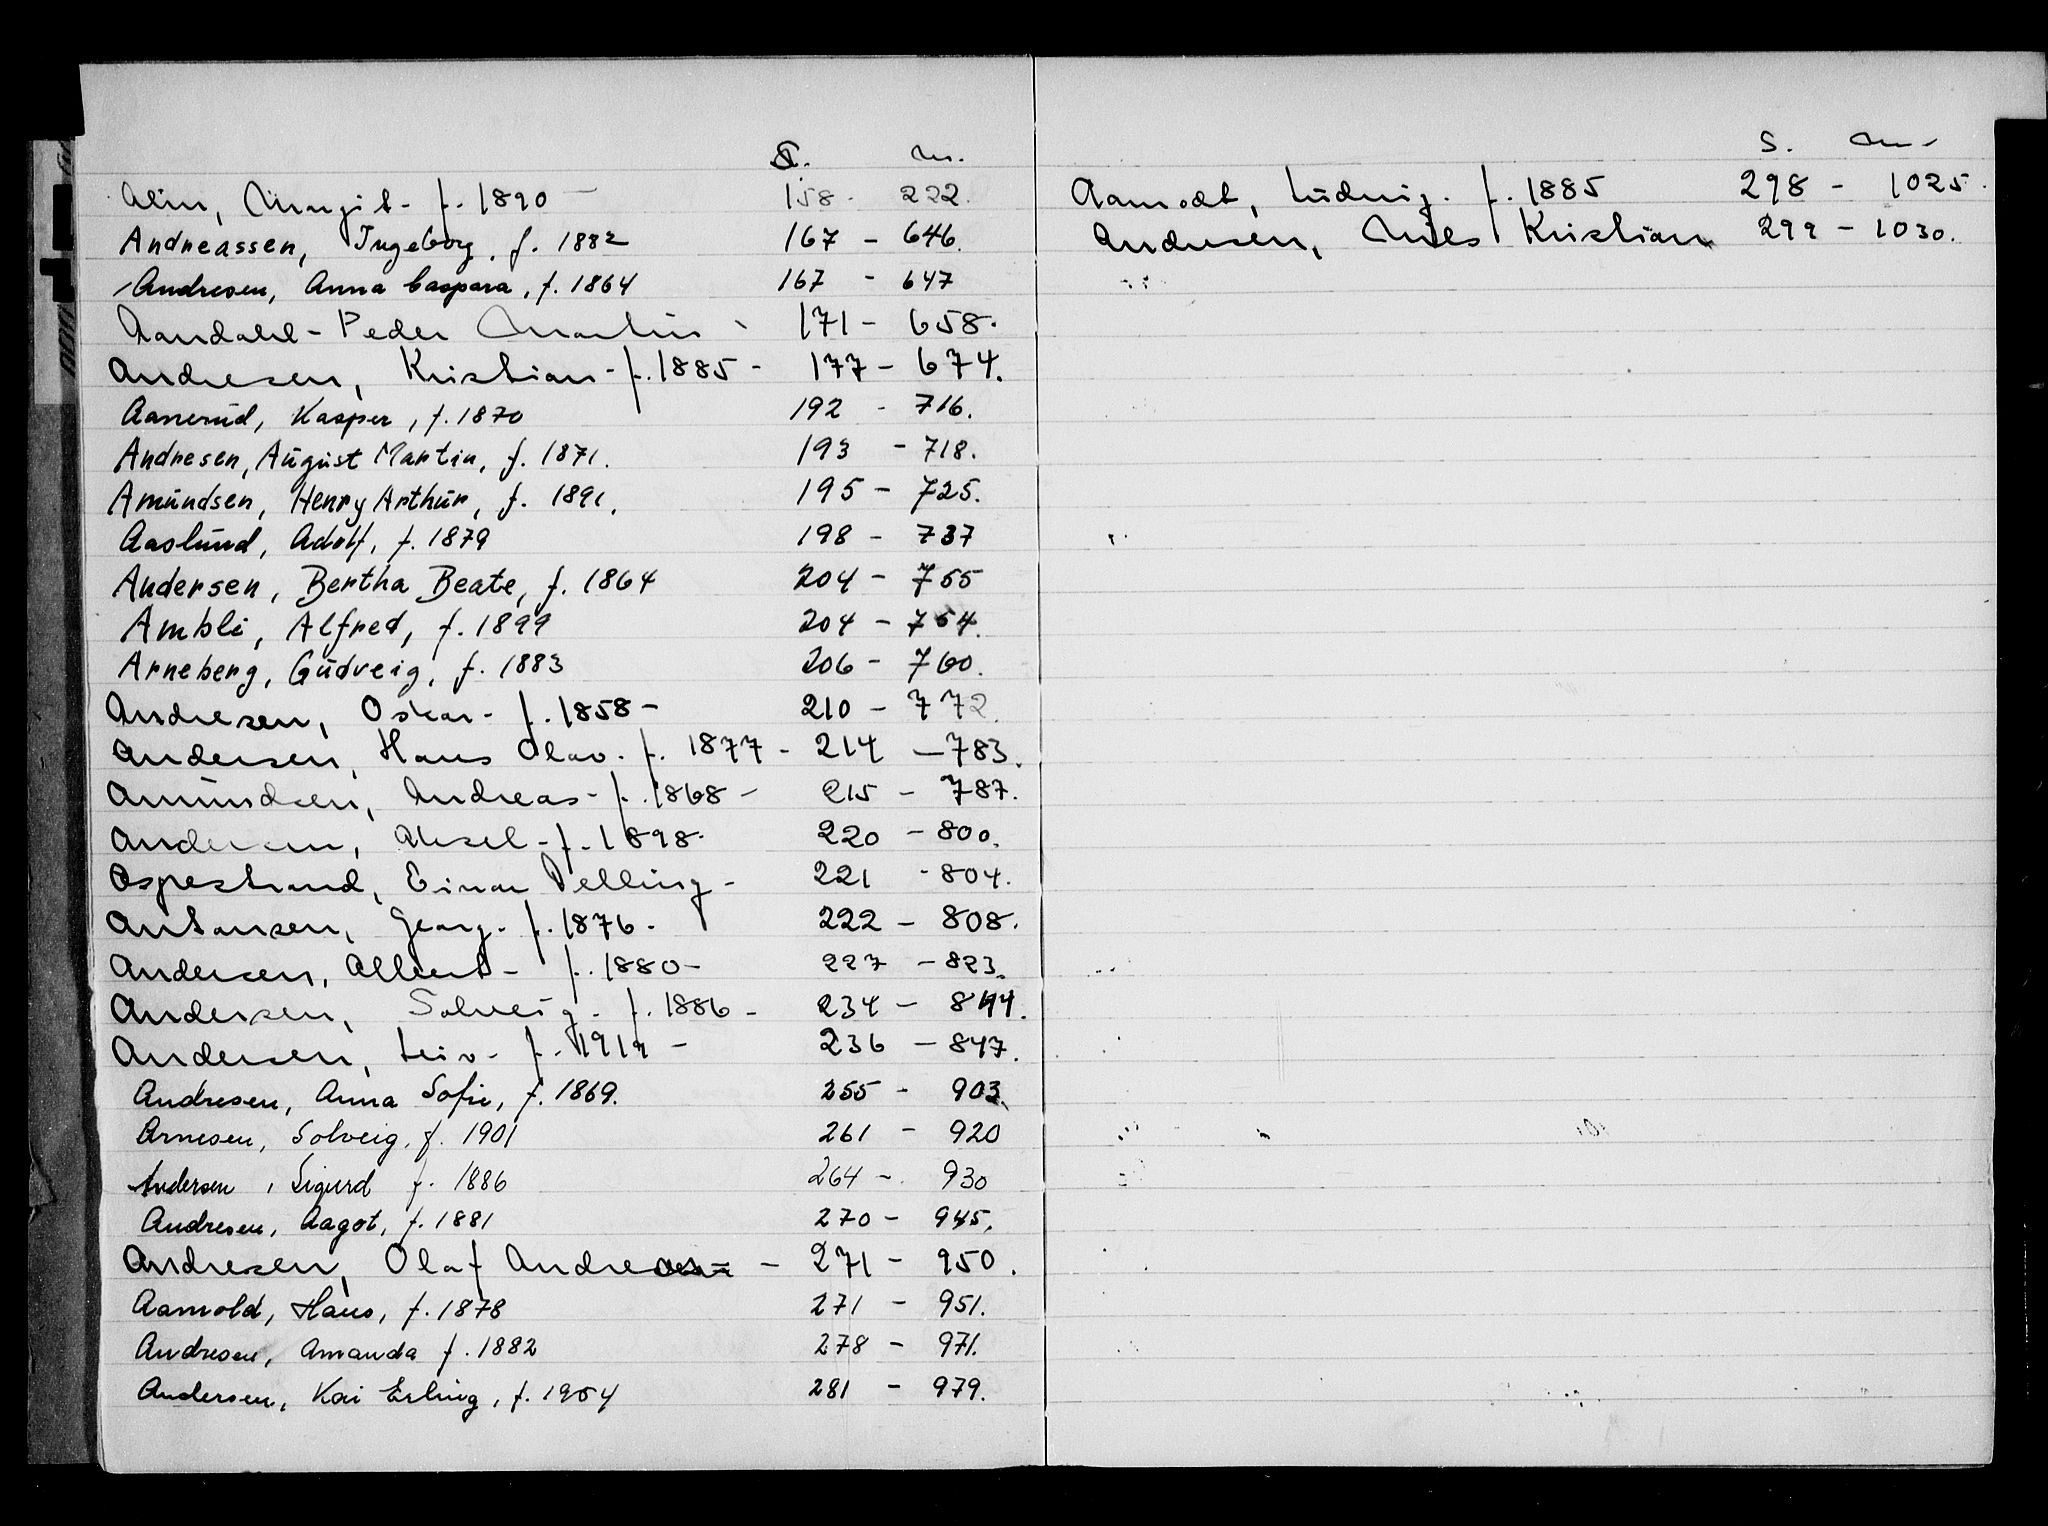 S. Nr.
Alm, Margit - f. 1890 - 158 - 222.
Andreassen, Ingeborg, f. 1882 167 - 646.
Andresen, Anna Caspara, f. 1864 167 - 647
Aandahl - Peder Martin - 171 - 658.
Andresen, Kristian - f. 1885 - 177 - 674.
Aanerud, Kasper, f. 1870 192 - 716.
Andresen, August Martin, f. 1871. 193 - 718.
Amundsen, Henry Arthur, f. 1891. 195 - 725.
Aaslund, Adolf, f. 1879 198 - 737
Andersen, Bertha Beate, f. 1864 204 - 755
Ambli, Alfred, f. 1899 204 - 754.
Arneberg, Gudveig, f. 1883 206 - 760.
Andresen, Oskar - f. 1858 - 210 - 772.
Andersen, Hans Olav. f. 1877 - 214 - 783.
Amundsen, Andreas - f. 1868 - 215 - 787.
Andersen, Aksel - f. 1898. 220 - 800.
Aspestrand, Einar Pelling - 221 - 804.
Antonsen, Georg - f. 1876. 222 - 808.
Andersen, Albert - f. 1880 - 227 - 823.
Andersen, Solveig - f. 1886 - 234 - 844.
Andersen, Leiv - f. 1919 - 236 - 847.
Andresen, Anna Sofie, f. 1869. 255 - 903.
Arnesen, Solveig, f. 1901 261 - 920
Andersen, Sigurd f. 1886 264 - 930
Andresen, Aagot, f. 1881 270 - 945.
Andresen, Olaf Andreas - 271 - 950.
Aamold, Hans, f. 1878 271 - 951.
Andresen, Amanda f. 1882 278 - 971.
Andersen, Kai Erling, f. 1904 281 - 979.
S. Nr.
Aamodt, Ludvig. f. 1885 298 - 1025.
Andersen, Nils Kristian 299 - 1030.